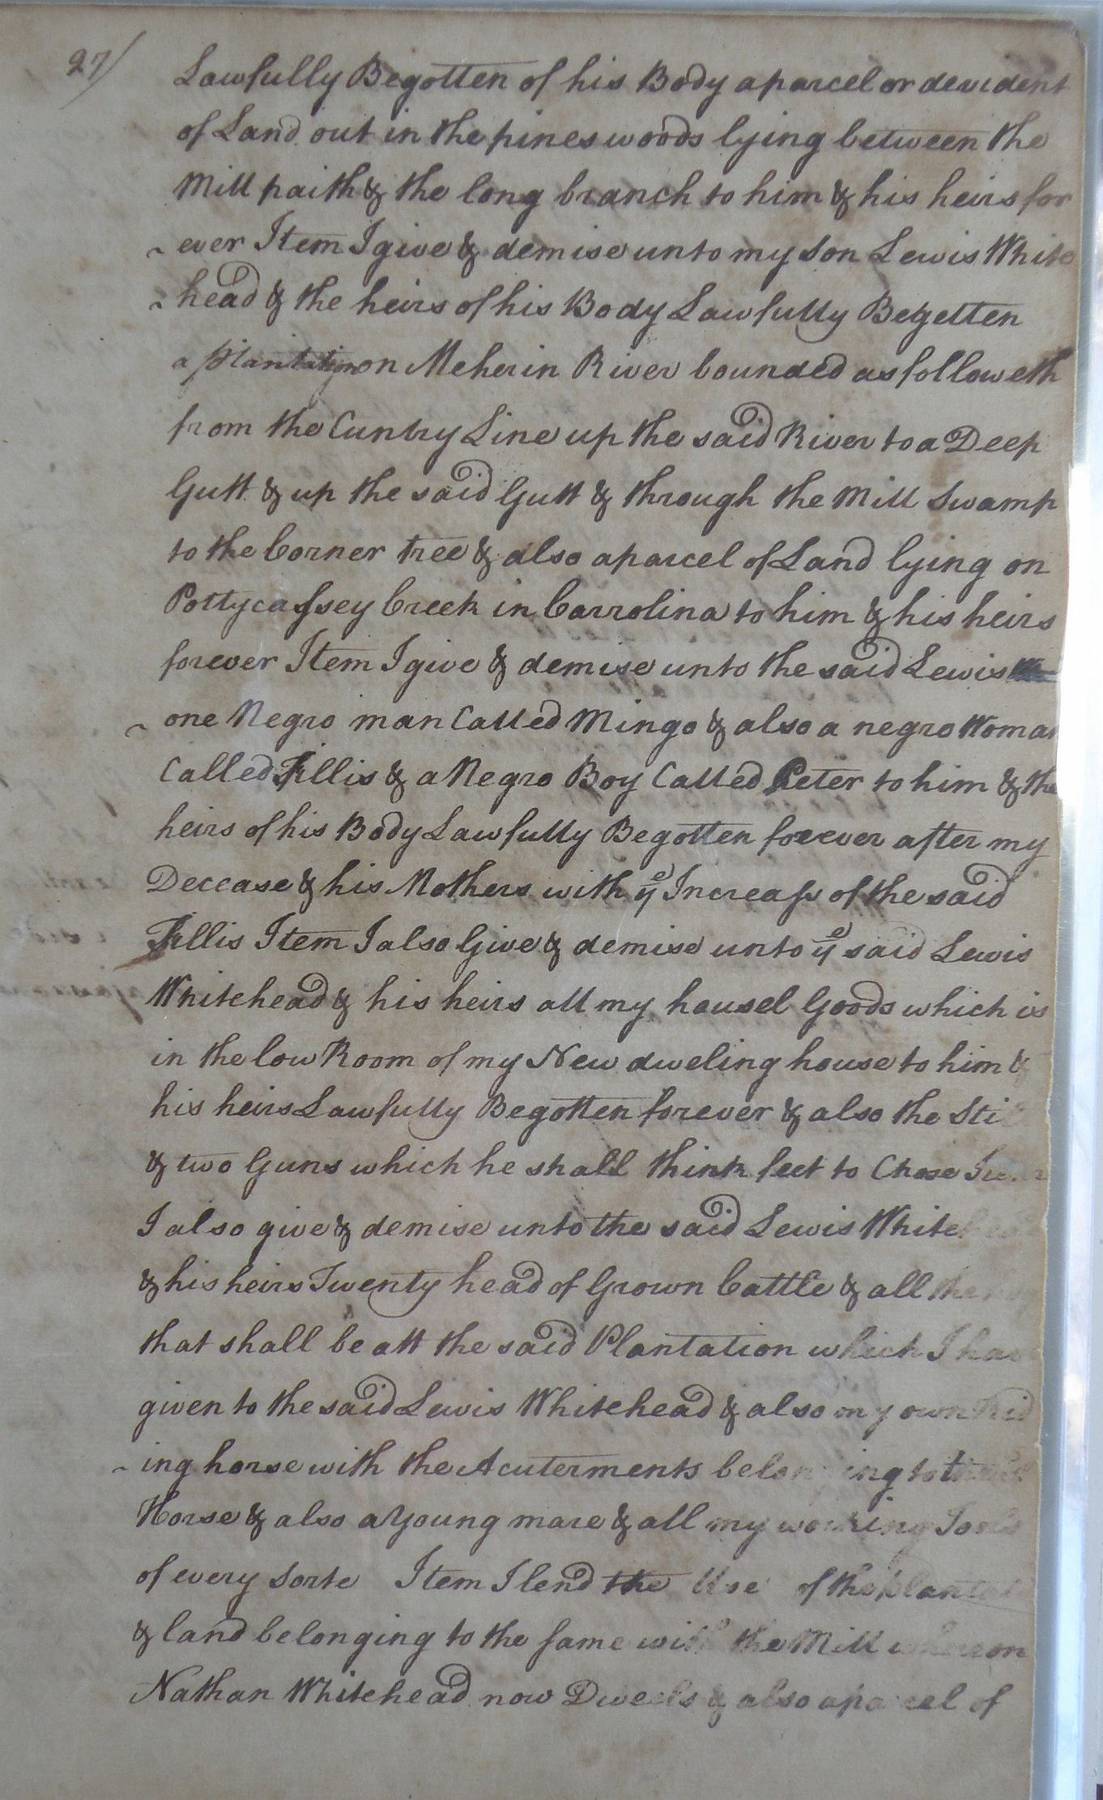 27/
Lawfully Begotten of his Body a parcel or devident
of Land out in the pines woods lying between the
Mill paith & the long branch to him & his heirs for
~ ever Item I give & demise unto my Son Lewis White
~ head & the heirs of his Body Lawfully Begetten
a plantation on Meherin River bounded as followeth
from the Cuntry Line up the said River to a Deep
Gutt & up the said Gutt & through the Mill Swamp
to the Corner tree & also a parcel of Land lying on
Pottycassey Creek in Carrolina to him & his heirs
forever Item I give & demise unto the said Lewis
~ one Negro man Called Mingo & also a negro Woman
Called Fillis & a Negro Boy Called Peter to him & the
heirs of his Body Lawfully Begotten forever after my
Decease & his Mothers with ye Increase of the said
Fillis Item I also Give & demise unto ye said Lewis
Whitehead & his heirs all my housel Goods which is
in the low Room of my New dweling house to him &
his heirs Lawfully Begotten forever & also the Still
& two Guns which he shall think feet to Chose
I also give & demise unto the said Lewis Whitehead
& his heirs Twenty head of Grown Cattle & all the
that shall be att the said Plantation which I have
given to the said Lewis Whitehead & also my own Rid
~ ing horse with the Acuterments belonging to the
Horse & also a Young mare & all my working Tools
of every Sorte Item I lend the Use of the
& land belonging to the same with the Mill whereon
Nathan Whitehead now Dweels & also a parcel of